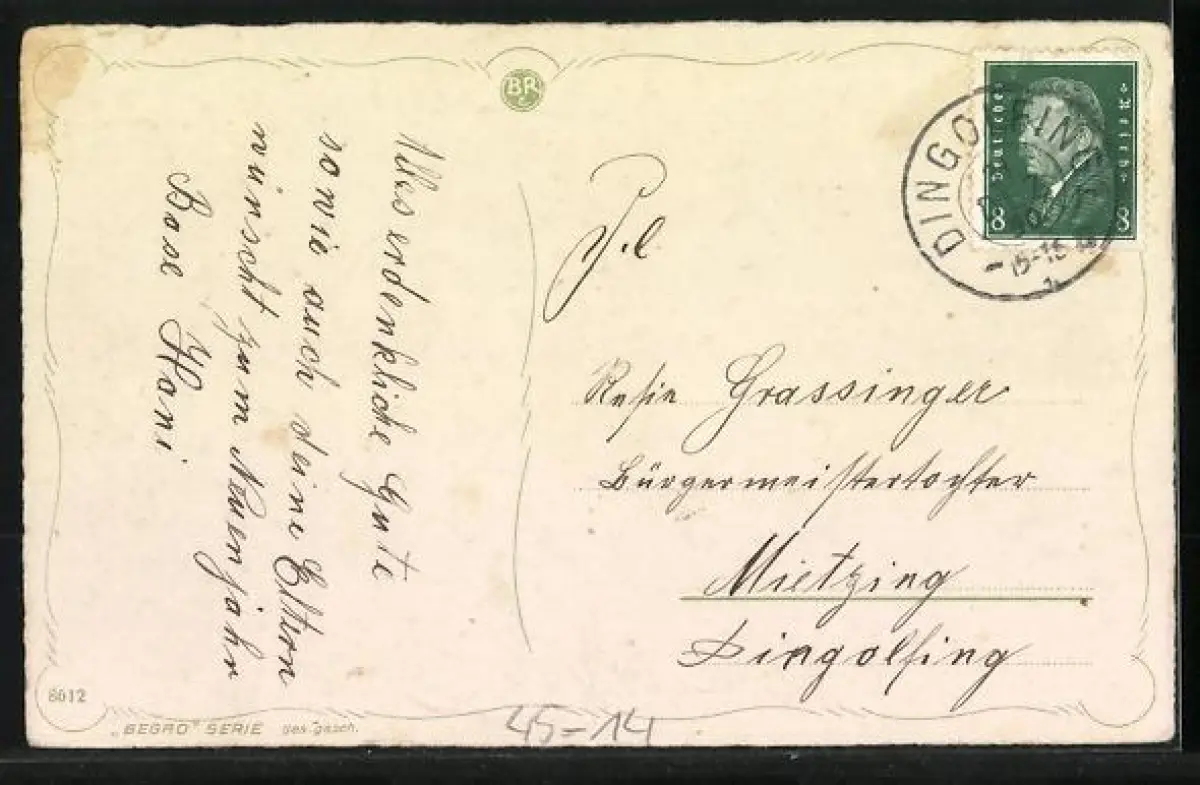 BR
Alles erdenkliche Gute
sowie auch deine Eltern
wünscht zum Neuenjahr
Bose Hani
8612
„BEGRO" SERIE ges. gesch.
45-14
Deutsches Reich
8 8
DINGOLFING
15-16
Resie Grassinger
Bürgermeisterstochter
Mietzing
Dingolfing